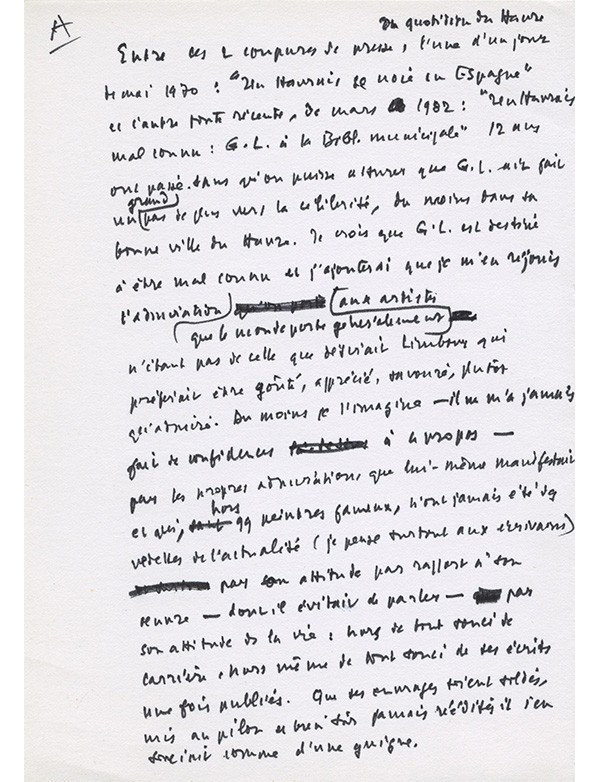 A
du quotidien du Havre
Entre ces 2 coupures de presse, l'une d'un jour
de mai 1970 : "Un Havrais se noie en Espagne"
et l'autre toute récente, de mars 1982 : "Un Havrais
mal connu : G.L. à la Bibl. municipale" 12 ans
ont passé. Sans qu'on puisse assurer que G.L. ait fait
grand
un pas de plus vers la célébrité, du moins dans sa
bonne ville du Havre. Je crois que G.L. est destiné
à être mal connu et j'ajouterai que je m'en réjouis
l'admiration aux artistes
que le monde porte généralement
n'étant pas de celle que désirait Limbour qui
préférait être goûté, apprécié, savouré, plutôt
qu'admiré. Du moins je l'imagine — il ne m'a jamais
fait de confidences à ce propos —
par les propres admirations que lui-même manifestait
et qui, hors qq peintres fameux, n'ont jamais été des
vedettes de l'actualité (je pense surtout aux écrivains)
par son attitude par rapport à son
œuvre — dont il évitait de parler — par
son attitude de la vie : hors de tout souci de
carrière, hors même de tout souci de ses écrits
une fois publiés. Que ses ouvrages soient soldés,
mis au pilon et bien sûr jamais réédités il s'en
souciait comme d'une guigne.